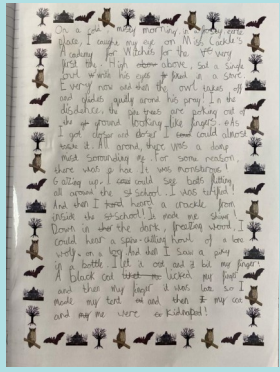 On a cold misty morning, in a spooky eerie
place, I caught my eye on Miss Cackle's
Academy for Witches for the very
first time. High above, sat a single
owl with his eyes fixed in a stare.
Every now and then the owl takes off
and glides quietly around his pray! In the
distance, the pine trees are poking out of
the ground looking like fingers. As
I got closer and closer I could almost
touch it. All around, there was a damp
mist surrounding me. For some reason,
there was a hoo. It was monstrous!
Gazing up, I could see bats flitting
all around the school. I was terrified!
And then I heard a crackle from
inside the school! It made me shiver.
Down in the dark, freezing wood, I
could hear a spine-chilling howl of a lone
wolf on a log. And then I saw a
in a bottle. I let it out and it bit my finger!
A black cat licked my finger
and then my finger it was long so I
made my tent and then my cat
and me were Kidnaped!